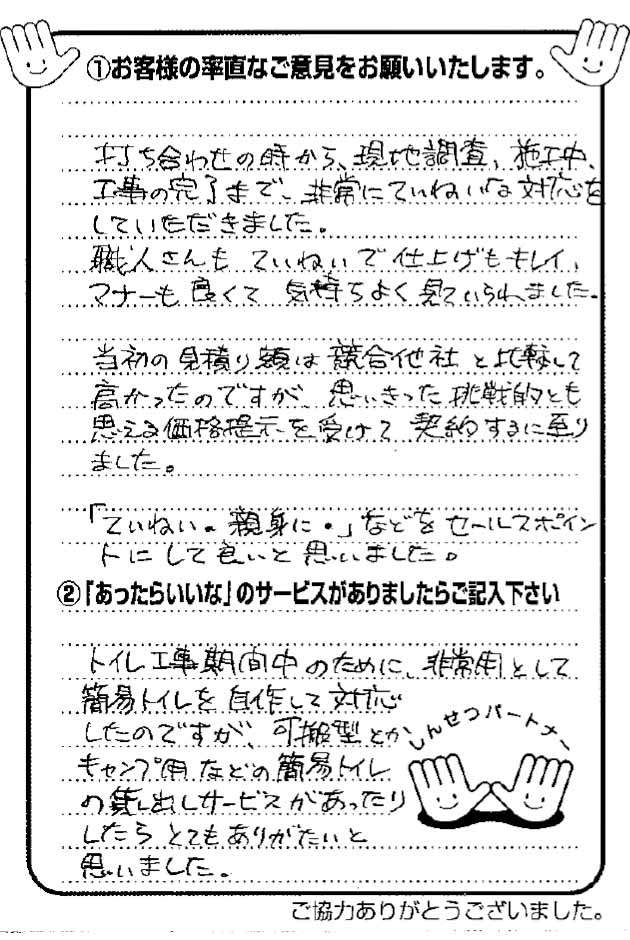 ①お客様の率直なご意見をお願いいたします。
打ち合わせの時から、現地調査、施工中、
工事の完了まで、非常にていねいな対応を
していただきました。
職人さんも ていねいで 仕上げもキレイ、
マナーも 良くて 気持ちよく 見ていられました。
当初の見積り額は 競合他社 と比較して
高かったのですが、思いきった 挑戦的とも
思える価格提示を受けて 契約するに至り
ました。
「ていねい。親身に・」などを セールスポイン
トにして良いと思いました。
②「あったらいいな」のサービスがありましたらご記入下さい
トイレ工事期間中のために、非常用として
簡易トイレを自作して対応
したのですが、可搬型とか
キャンプ用などの簡易トイレ
の貸し出しサービスがあったり
したら とてもありがたいと
思いました。
しんせつパートナー
ご協力ありがとうございました。